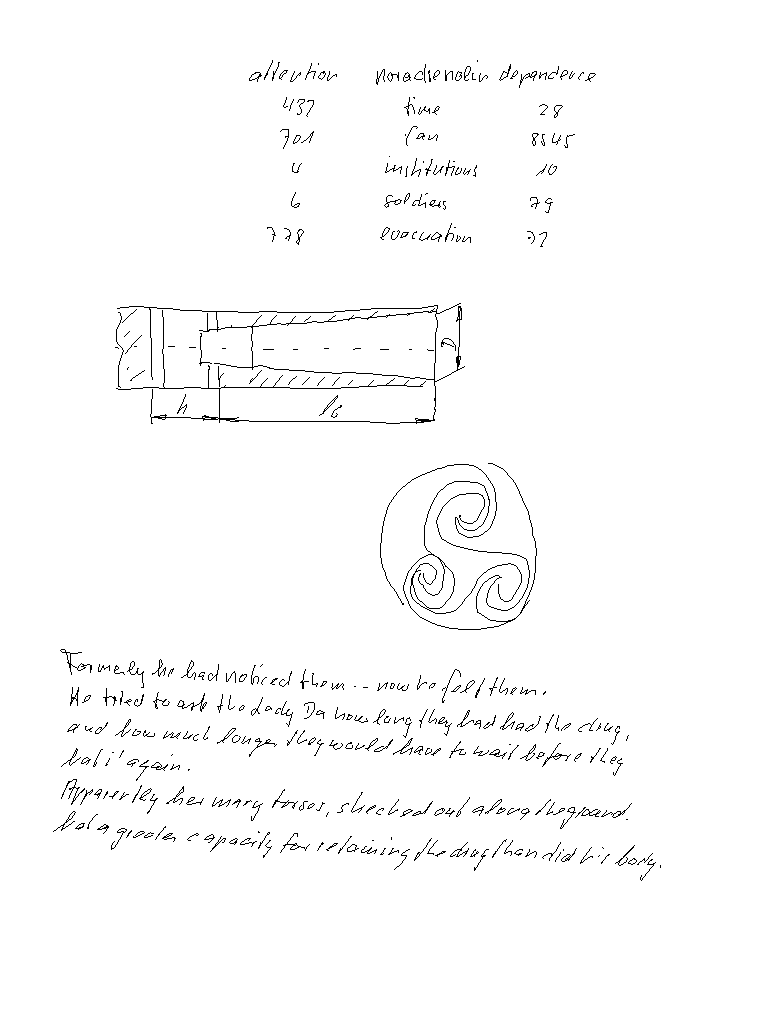 attention noradrenalin dependence
437 time 28
701 can 8545
4 institutions 10
6 soldiers 79
778 evacuation 71
D
h l6
Formerly he had noticed them -- now he felt them.
He tried to ask the Lady Da how long they had had the drug,
and how much longer they would have to wait before they
had it again.
Apparently her many torsos, stretched out along the ground.
had a greater capacity for retaining the drug than did his body.